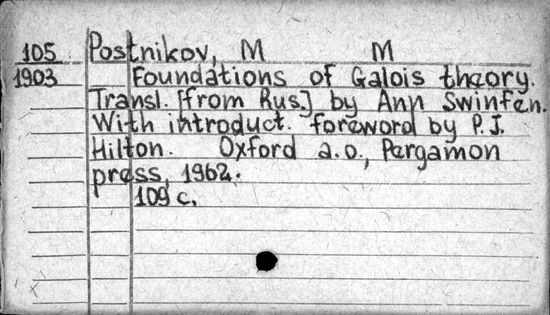 105 Postnikov, M M
1903 Foundations of Galois theory.
Transl. [from Rus.] by Ann Swinfen.
With introduct. foreword by P. I.
Hilton. Oxford a.o., Pergamon
press, 1962.
109 c.